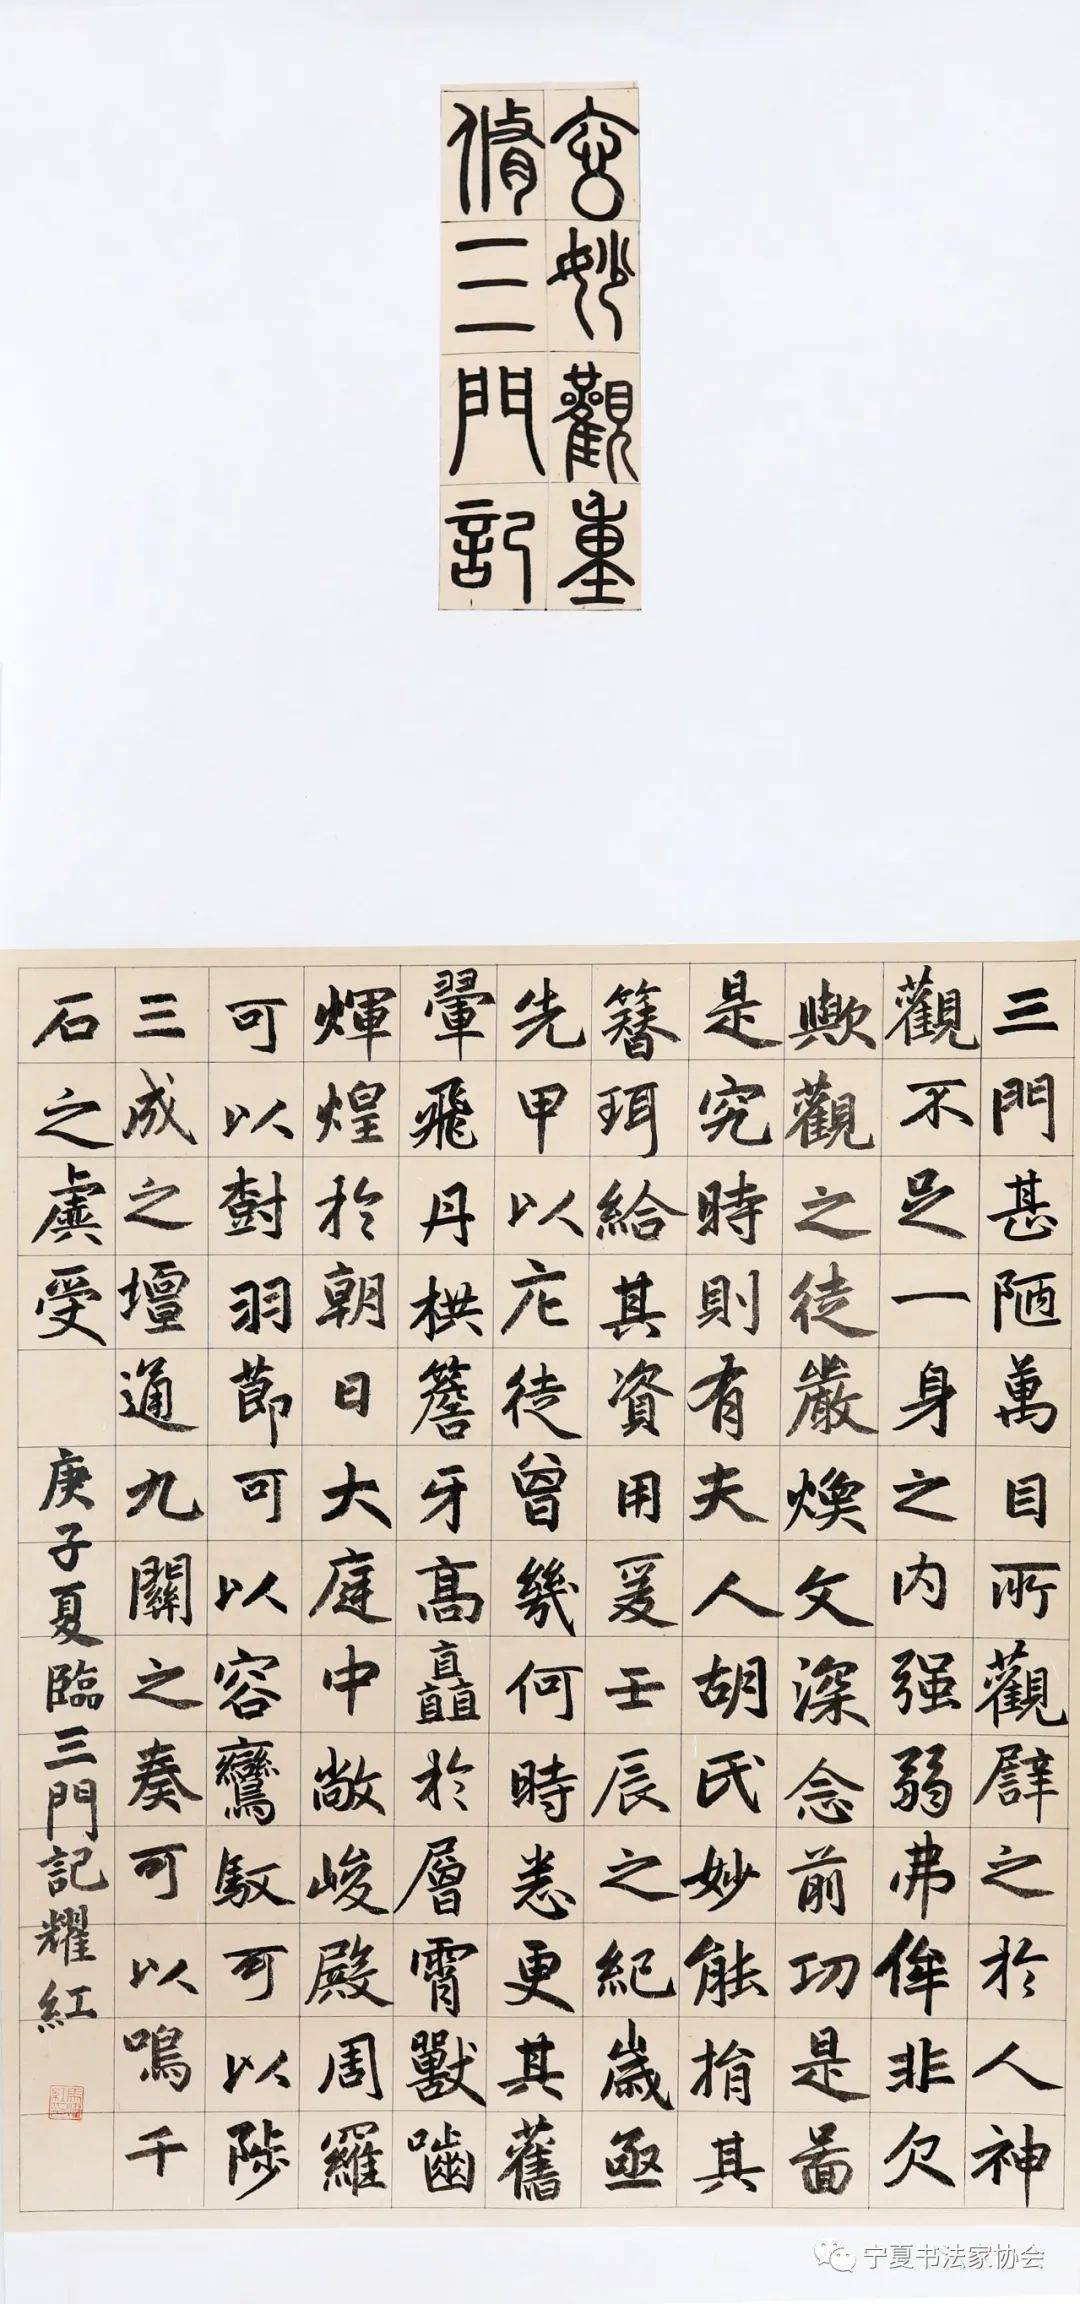 玄妙觀重
脩三門記
三門甚陋萬目所觀譬之於人神
觀不足一身之内强弱弗侔非欠
歟觀之徒嚴煥文深念前功是啚
是究時則有夫人胡氏妙能捐其
簪珥給其資用爰壬辰之紀歲亟
先甲以庀徒曾幾何時悉更其舊
翬飛丹栱簷牙高矗於層霄獸嚙
煇煌於朝日大庭中敞峻殿周羅
可以樹羽節可以容鸞馭可以陟
三成之壇通九關之奏可以鳴千
石之虡受
庚子夏臨三門記耀紅
宁夏书法家协会